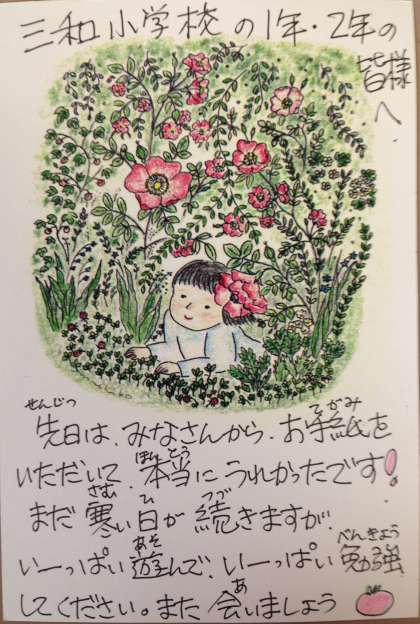 三和小学校の1年・2年の
皆様
へ.
せんじつ てがみ
先日は、みなさんから、お手紙を
ほんとう
いただいて、本当にうれしかったです!
さむ ひ つづ
まだ寒い日が続きますが、
あそ べんきょう
いーっぱい遊んで、いーっぱい勉強
あ
してください。また会いましょう